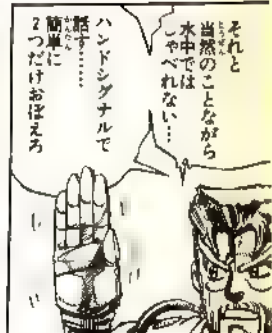 それと
当然のことながら
水中では
しゃべれない…
ハンドシグナルで
話す……
簡単に
2つだけおぼえろ